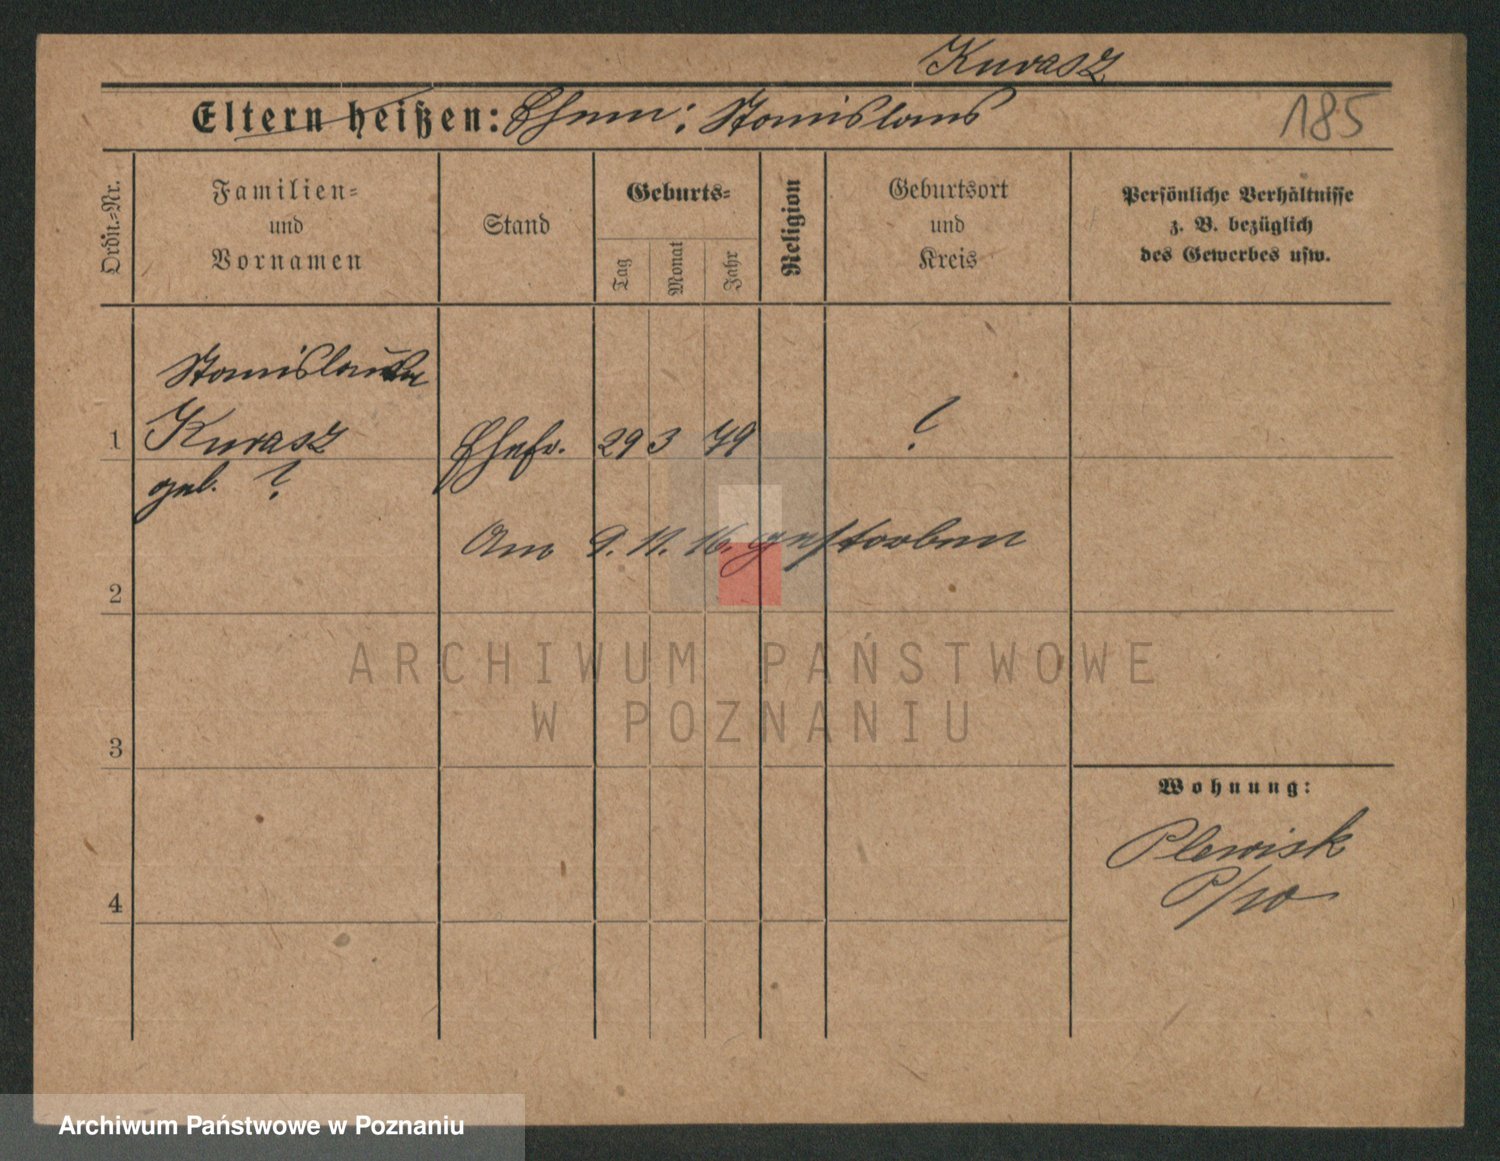 Kurasz
Eltern heißen: Ehem: Stanislaus
185
Ordn.-Nr.
Familien-
und
Vornamen
Stand
Geburts-
Tag
Monat
Jahr
Religion
Geburtsort
und
Kreis
Persönliche Verhältnisse
z. B. bezüglich
des Gewerbes usw.
1
Kurasz
geb. ?
Ehefr. 29 3 79
?
Am 9. 11. 16. gestorben
2
3
4
ARCHIWUM PAŃSTWOWE
W POZNANIU
Wohnung:
Plewisk
P/10
Archiwum Państwowe w Poznaniu